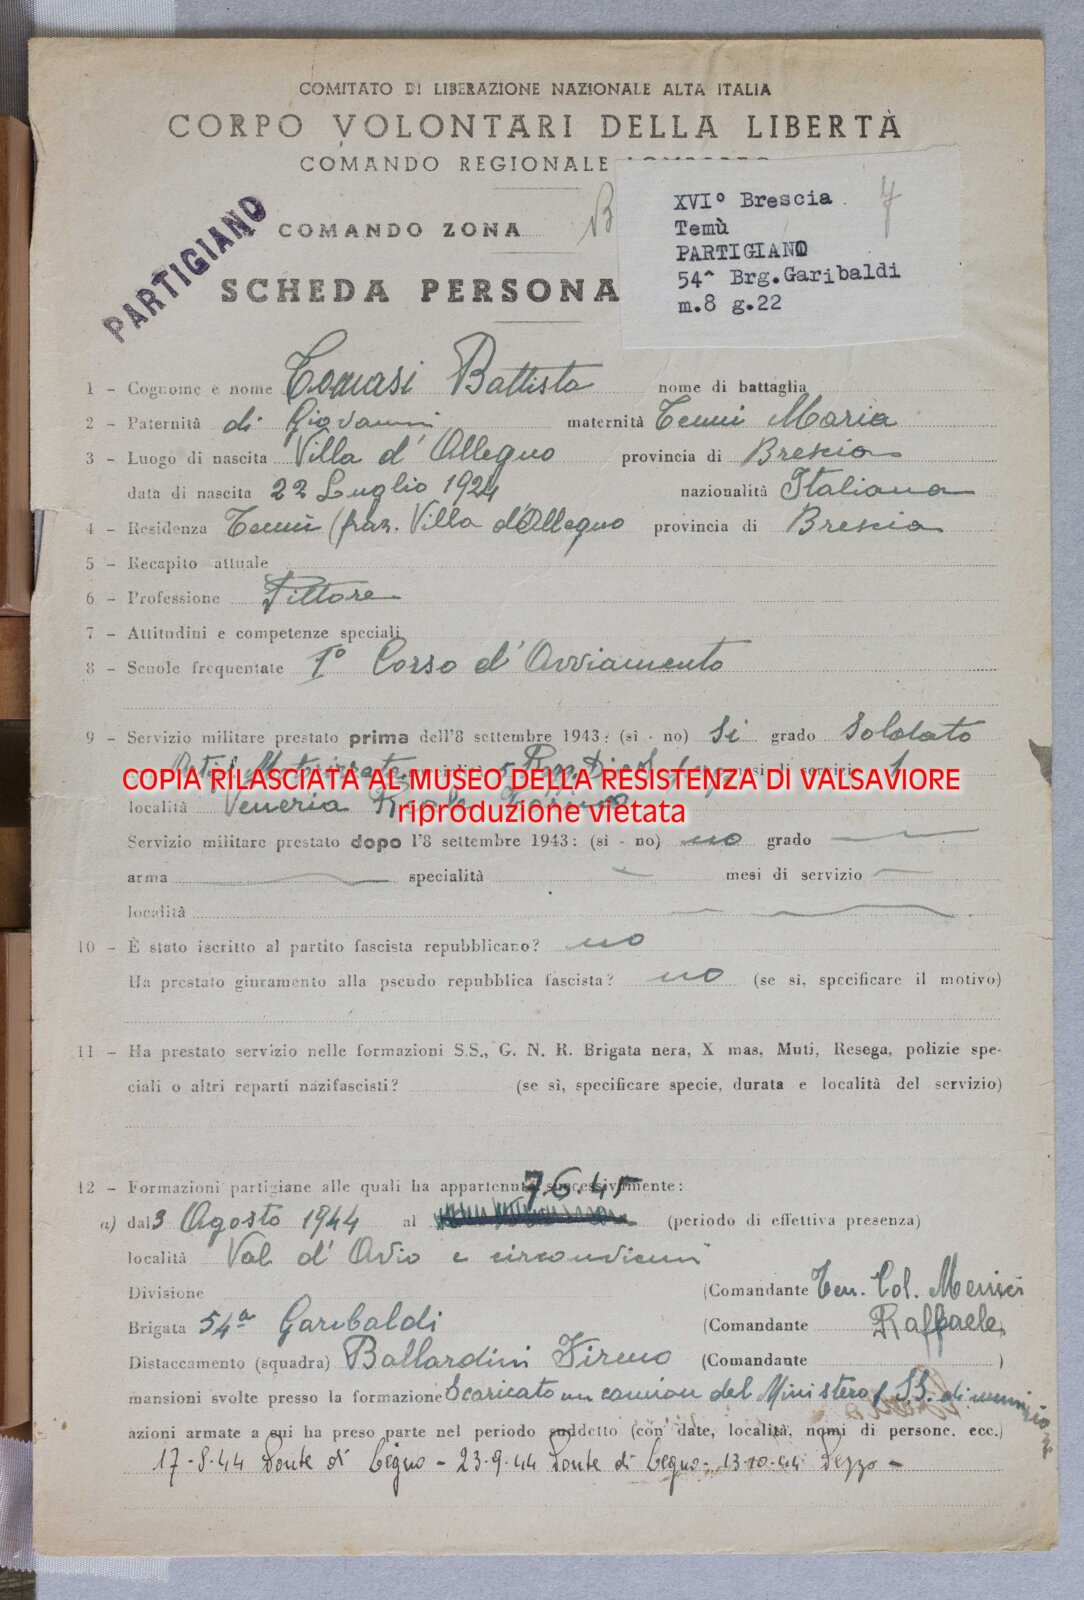 COMITATO DI LIBERAZIONE NAZIONALE ALTA ITALIA
CORPO VOLONTARI DELLA LIBERTÀ
COMANDO REGIONALE
COMANDO ZONA B
SCHEDA PERSONA
PARTIGIANO
XVI° Brescia 7
Temù
PARTIGIANO
54^ Brg.Garibaldi
m.8 g.22
1 - Cognome e nome Tomasi Battista nome di battaglia
2 - Paternità di Giovanni maternità Temui Maria
3 - Luogo di nascita Villa d'Allegno provincia di Brescia
data di nascita 22 Luglio 1924 nazionalità Italiana
4 - Residenza Temù (fraz. Villa d'Allegno provincia di Brescia
5 - Recapito attuale
6 - Professione Pittore
7 - Attitudini e competenze speciali
8 - Scuole frequentate 1° Corso d'Avviamento
9 - Servizio militare prestato prima dell'8 settembre 1943: (sì - no) Si grado Soldato
COPIA RILASCIATA AL MUSEO DELLA RESISTENZA DI VALSAVIORE
località Veneria Reale Torino
riproduzione vietata
Servizio militare prestato dopo l'8 settembre 1943: (sì - no) no grado
arma specialità mesi di servizio
località
10 - È stato iscritto al partito fascista repubblicano? no
Ha prestato giuramento alla pseudo repubblica fascista? no (se sì, specificare il motivo)
11 - Ha prestato servizio nelle formazioni S.S., G. N. R. Brigata nera, X mas, Muti, Resega, polizie spe-
ciali o altri reparti nazifascisti? (se sì, specificare specie, durata e località del servizio)
12 - Formazioni partigiane alle quali ha appartenuto successivamente:
7.6.45
a) dal 3 Agosto 1944 al (periodo di effettiva presenza)
località Val d'Avio e circonvicini
Divisione (Comandante Ten. Col. Menici
Brigata 54ª Garibaldi (Comandante Raffaele
Distaccamento (squadra) Ballardini Firmo (Comandante )
mansioni svolte presso la formazione Scaricato un camion del Ministero SS. di munizione
azioni armate a cui ha preso parte nel periodo suddetto (con date, località, nomi di persone, ecc.)
17-8-44 Ponte di Legno - 23-9-44 Ponte di Legno - 13-10-44 Pezzo -